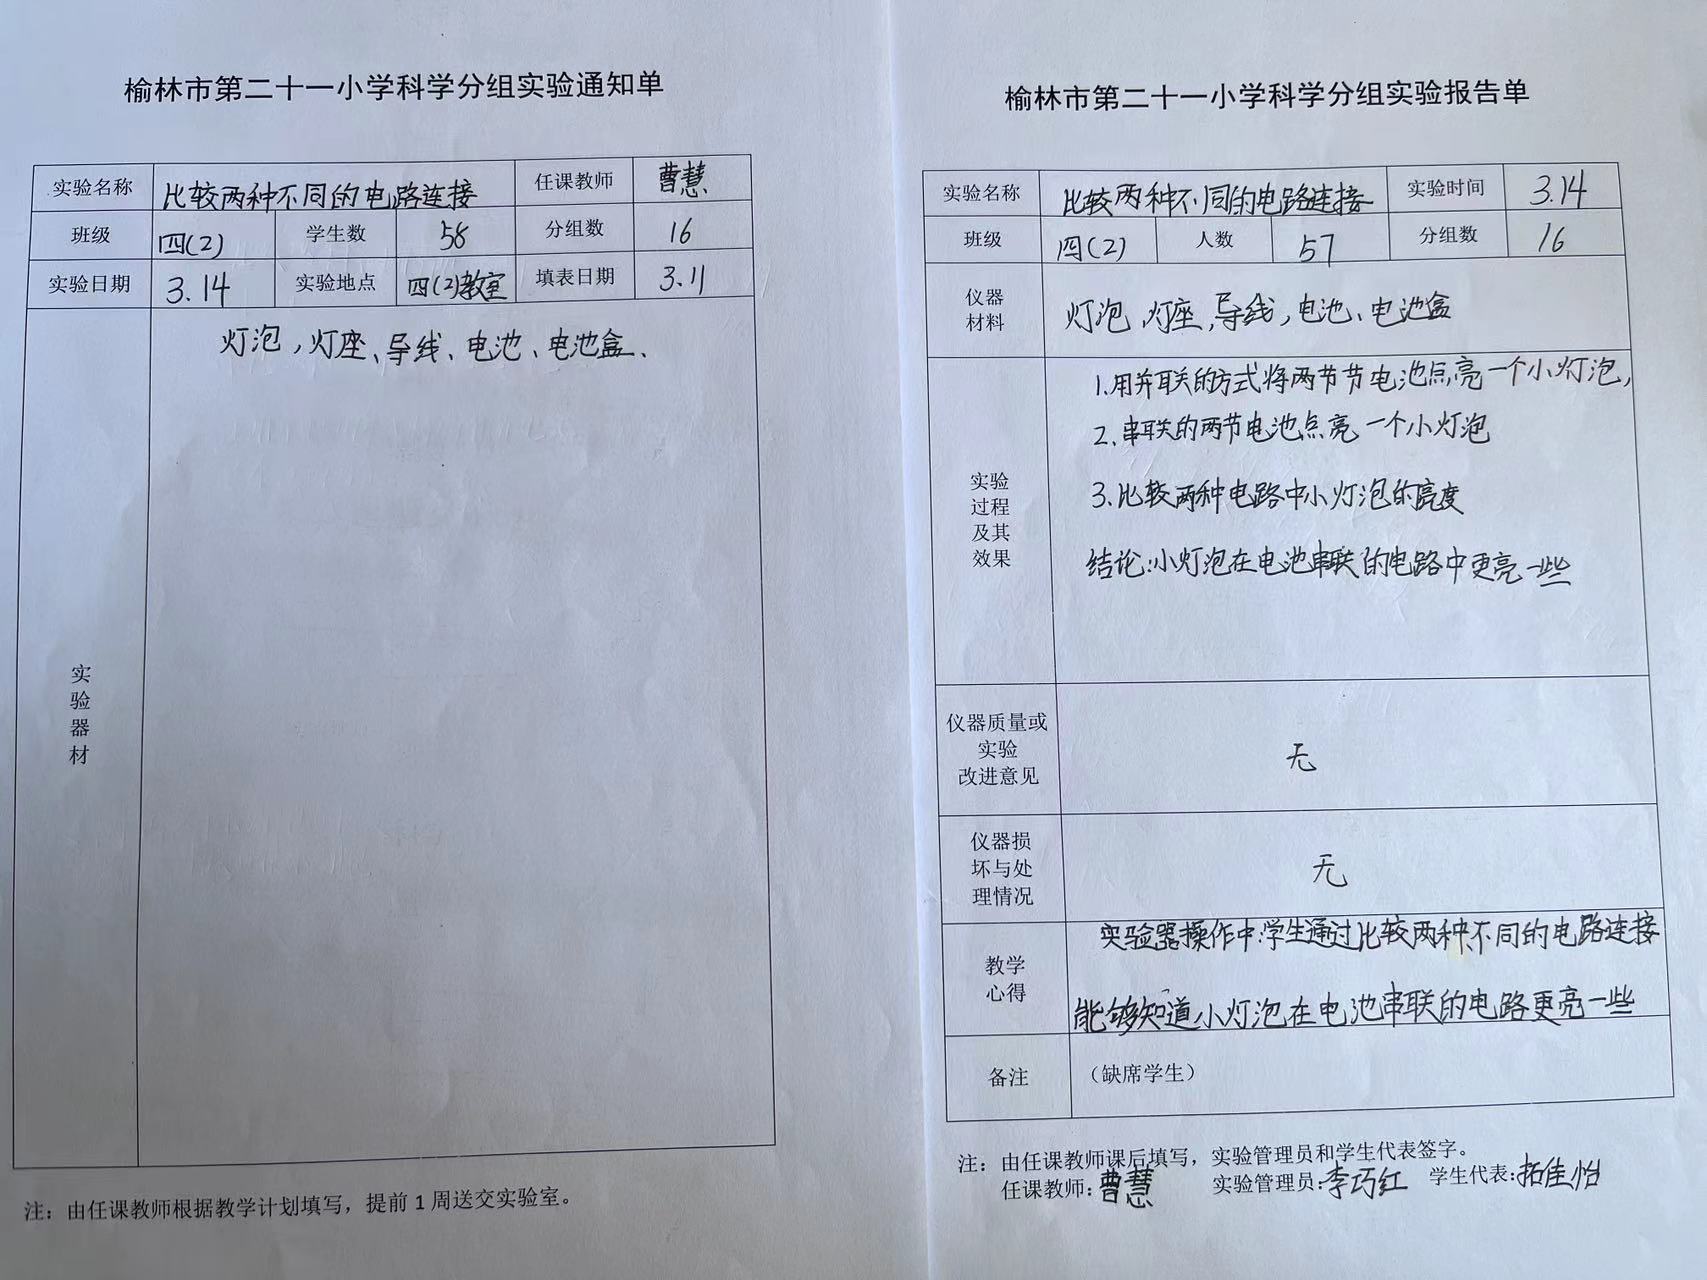 榆林市第二十一小学科学分组实验通知单
实验名称 比较两种不同的电路连接 任课教师 曹慧
班级 四(2) 学生数 58 分组数 16
实验日期 3.14 实验地点 四(2)教室 填表日期 3.11
实验器材 灯泡，灯座、导线、电池、电池盒、
注：由任课教师根据教学计划填写，提前 1 周送交实验室。
榆林市第二十一小学科学分组实验报告单
实验名称 比较两种不同的电路连接 实验时间 3.14
班级 四(2) 人数 57 分组数 16
仪器
材料
灯泡、灯座，导线，电池、电池盒
实验
过程
及其
效果
1.用并联的方式将两节节电池点亮一个小灯泡，
2.串联的两节电池点亮一个小灯泡
3.比较两种电路中小灯泡的亮度
结论:小灯泡在电池串联的电路中更亮一些
仪器质量或
实验
改进意见
无
仪器损
坏与处
理情况
无
教学
心得
实验器操作中:学生通过比较两种不同的电路连接
能够知道小灯泡在电池串联的电路更亮一些
备注 （缺席学生）
注：由任课教师课后填写，实验管理员和学生代表签字。
任课教师：曹慧 实验管理员：李巧红 学生代表：拓佳怡